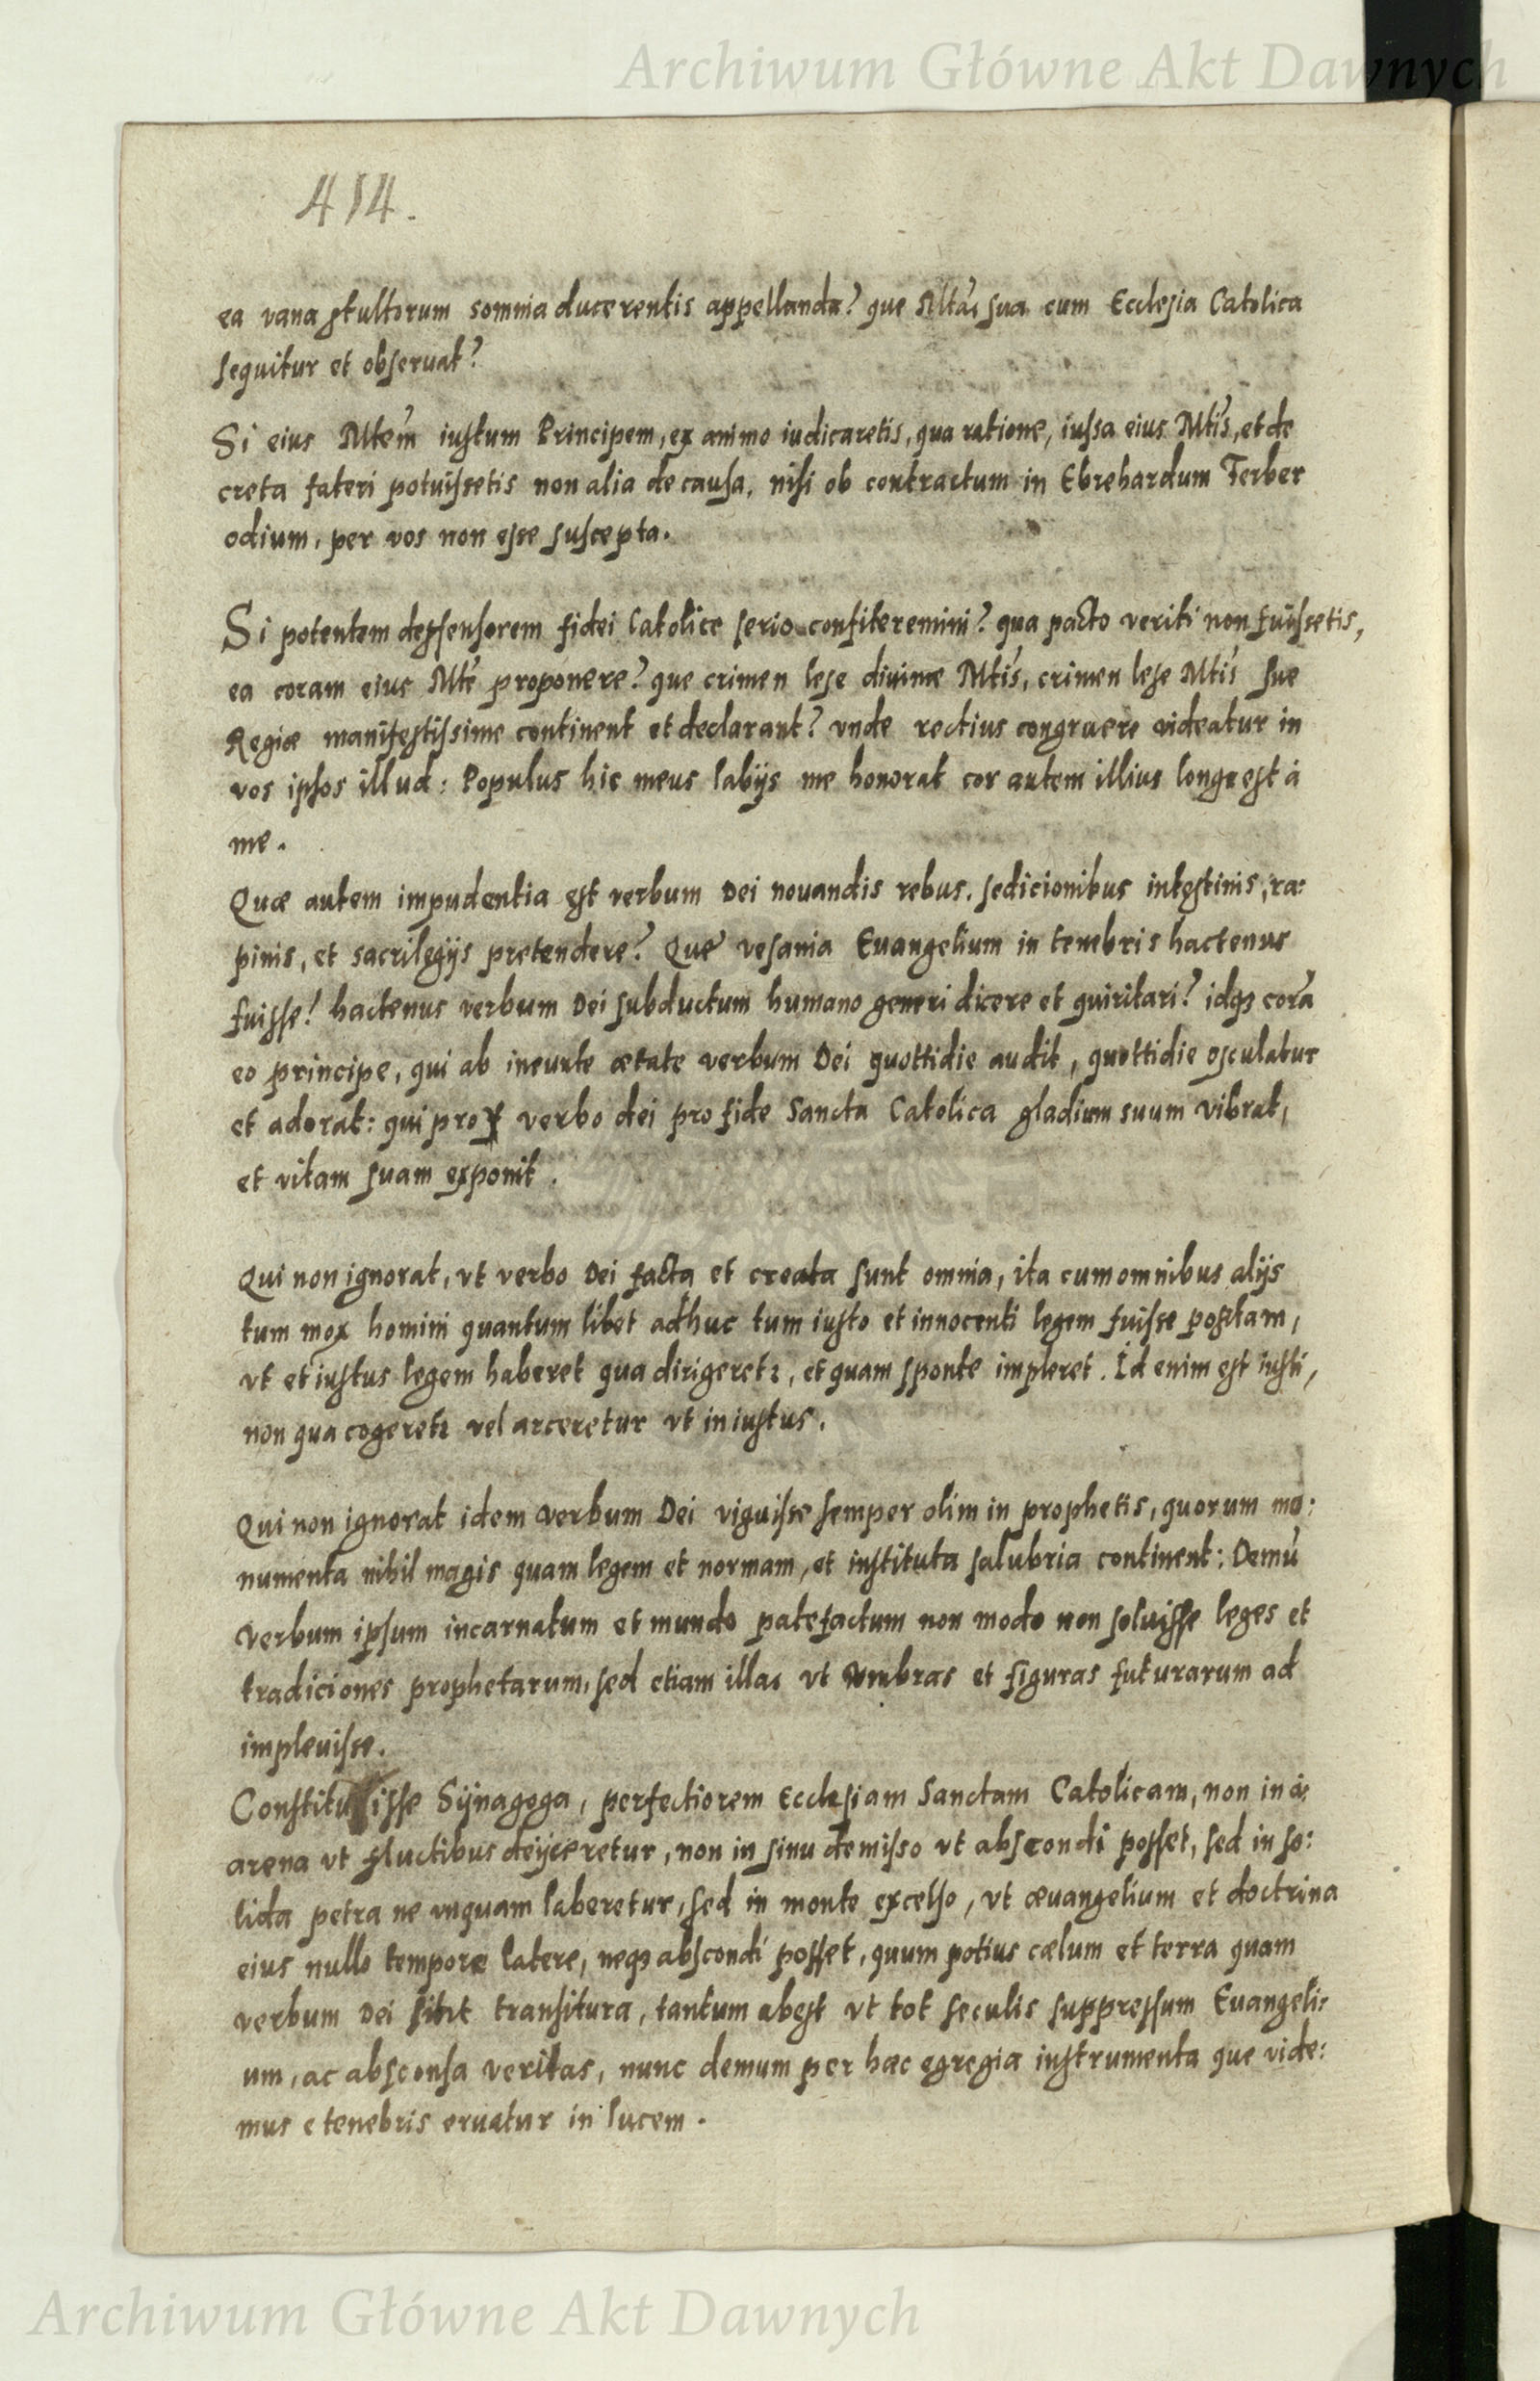 Archiwum Główne Akt Dawnych
414.
ea vana stultorum somnia ducerentis appellanda? que Mtas sua cum Ecclesia Catolica
sequitur et obseruat?
Si eius Mtem iustum Principem, ex animo iudicaretis, qua ratione, iussa eius Mtis, et de
creta fateri potuissetis non alia de causa, nisi ob contractum in Ebrehardum Ferber
odium, per vos non esse suscepta.
Si potentem defensorem fidei Catolice serio confiteremini? qua pacto veriti non fuissetis,
ea coram eius Mte proponere? que crimen lese divinæ Mtis, crimen lese Mtis sue
Regiæ manifestissime continent et declarant? vnde rectius congruere videatur in
vos ipsos illud: Populus hic meus labijs me honorat cor autem illius longe est à
me.
Quæ autem impudentia est verbum Dei nouandis rebus, sedicionibus intestinis, ra:
pinis, et sacrilegijs pretendere? Quæ vesania Euangelium in tenebris hactenus
fuisse! hactenus verbum Dei subductum humano generi dicere et quiritari? idqz corã
eo principe, qui ab ineunte ætate verbum Dei quottidie audit, quottidie osculatur
et adorat: qui pro verbo dei pro fide Sancta Catolica gladium suum vibrat,
et vitam suam exponit.
Qui non ignorat, vt verbo Dei facta et creata sunt omnia, ita cum omnibus alijs
tum mox homini quantum libet adhuc tum iusto et innocenti legem fuisse positam,
vt et iustus legem haberet qua dirigeretr, et quam sponte impleret. Id enim est iusti,
non qua cogeretr vel arceretur vt iniustus.
Qui non ignorat idem verbum Dei viguisse semper olim in prophetis, quorum mo:
numenta nihil magis quam legem et normam, et instituta salubria continent: Demũ
verbum ipsum incarnatum et mundo patefactum non modo non soluisse leges et
tradiciones prophetarum, sed etiam illas vt vmbras et figuras futurarum ad
impleuisse.
Constituisse Sÿnagoga, perfectiorem Ecclesiam Sanctam Catolicam, non in a:
arena vt fluctibus deijceretur, non in sinu demisso vt abscondi posset, sed in so:
lida petra ne vnquam laberetur, sed in monte excelso, vt æuangelium et doctrina
eius nullo tempore latere, neqz abscondi posset, quum potius cælum et terra quam
verbum Dei sint transitura, tantum abest vt tot seculis suppressum Euangeli:
um, ac absconsa veritas, nunc demum per hæc egregia instrumenta que vide:
mus e tenebris eruatur in lucem.
Archiwum Główne Akt Dawnych